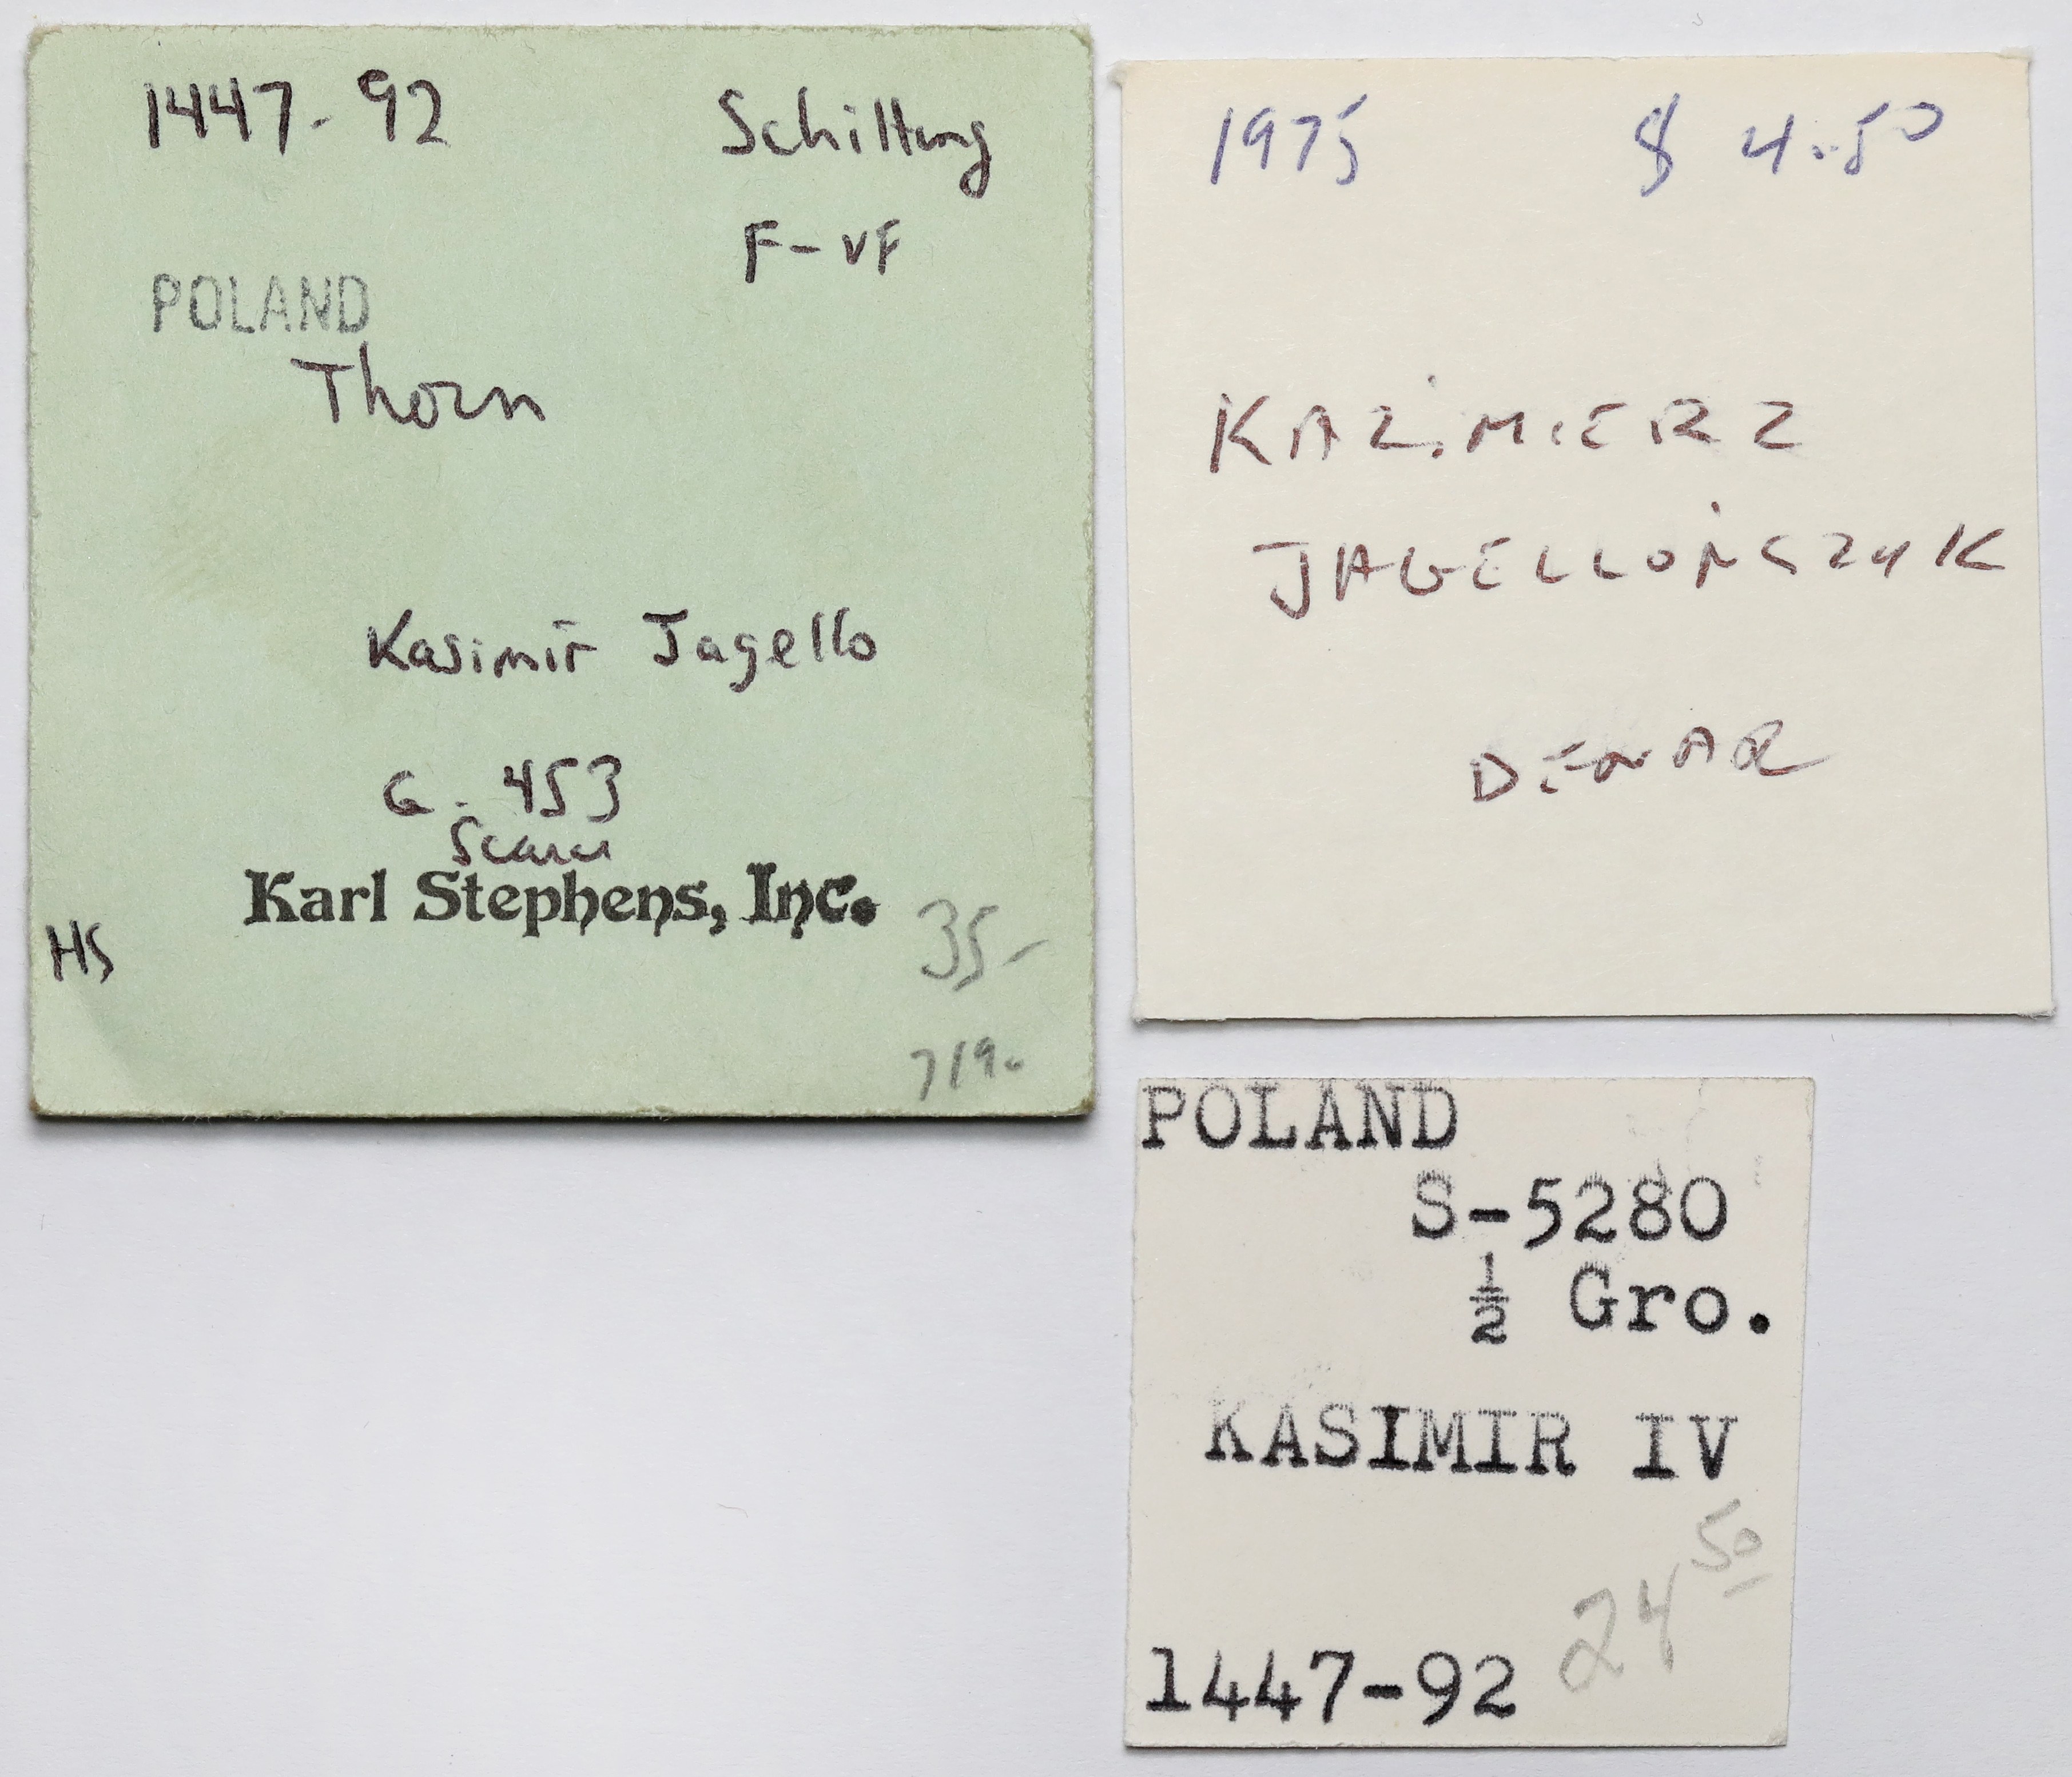 1447-92 Schilling
F-VF
POLAND
Thorn
Kasimir Jagello
G. 453
Scarce
Karl Stephens, Inc.
HS 35-
719-
1975 $ 4.50
KAZIMIERZ
JAGELLOŃCZYK
DENAR
POLAND
S-5280
½ Gro.
KASIMIR IV
24 50
1447-92